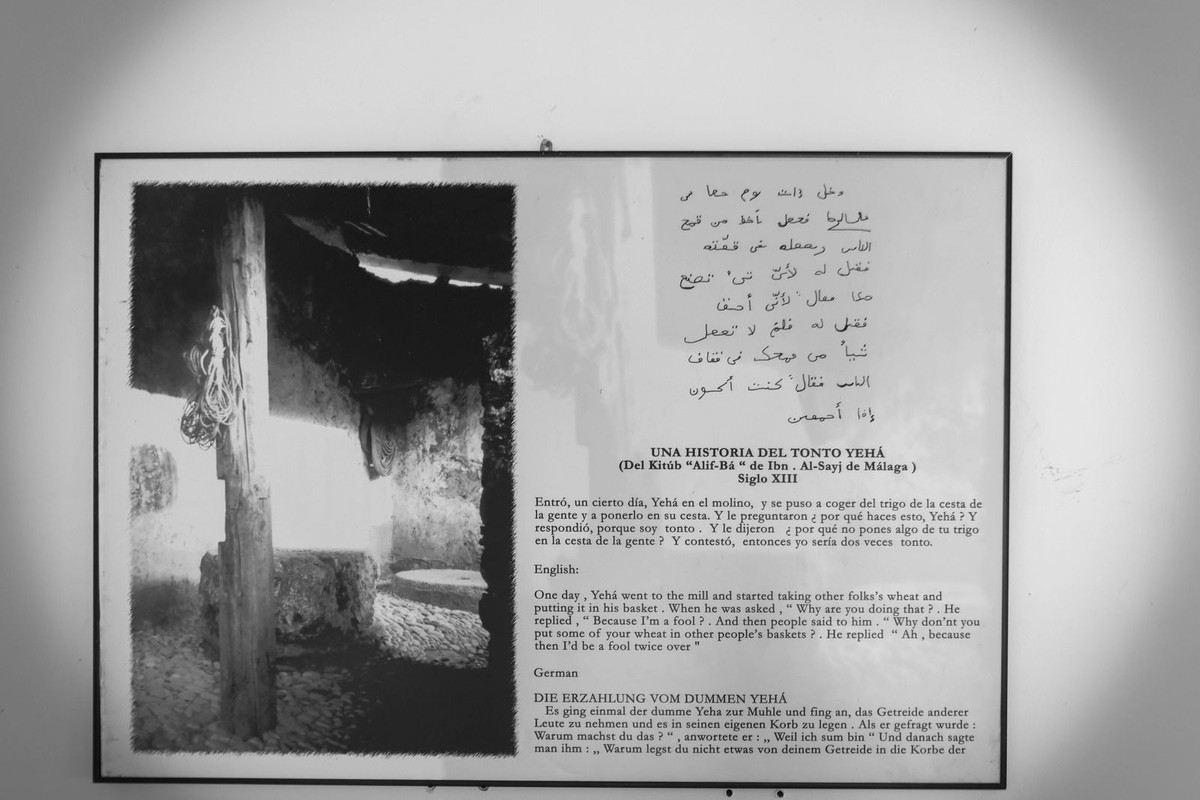 دخل ذات يوم جحا في
فجعل يأخذ من قمح
الناس ويجعله في قفّته
فقيل له لأيّ شيء تصنع
هذا فقال لأنّي أحمق
فقيل له فلم لا تجعل
شيئاً من قمحك في قفاف
الناس فقال كنت أكون
إذا أحمقين
UNA HISTORIA DEL TONTO YEHÁ
(Del Kitúb “Alif-Bá “ de Ibn . Al-Sayj de Málaga )
Siglo XIII
Entró, un cierto día, Yehá en el molino, y se puso a coger del trigo de la cesta de
la gente y a ponerlo en su cesta. Y le preguntaron ¿ por qué haces esto, Yehá ? Y
respondió, porque soy tonto . Y le dijeron ¿ por qué no pones algo de tu trigo
en la cesta de la gente ? Y contestó, entonces yo sería dos veces tonto.
English:
One day , Yehá went to the mill and started taking other folks’s wheat and
putting it in his basket . When he was asked , “ Why are you doing that ? . He
replied , “ Because I’m a fool ? . And then people said to him . “ Why don’nt you
put some of your wheat in other people’s baskets ? . He replied “ Ah , because
then I’d be a fool twice over "
German
DIE ERZAHLUNG VOM DUMMEN YEHÁ
Es ging einmal der dumme Yeha zur Muhle und fing an, das Getreide anderer
Leute zu nehmen und es in seinen eigenen Korb zu legen . Als er gefragt wurde :
Warum machst du das ? “ , anwortete er : ,, Weil ich sum bin “ Und danach sagte
man ihm : ,, Warum legst du nicht etwas von deinem Getreide in die Korbe der